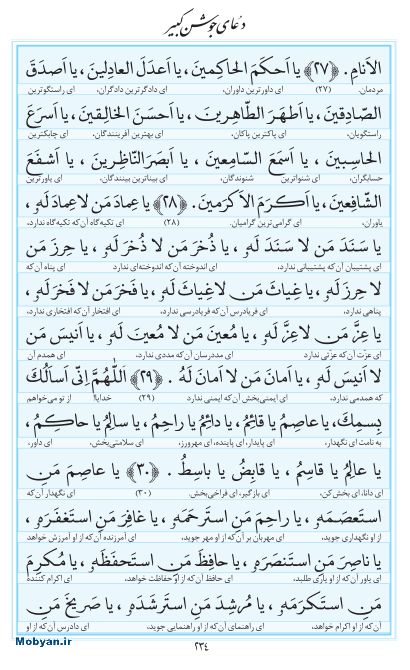 دعای جوشن کبیر
الاَنامِ. ﴿٢٧﴾ یا اَحکَمَ الحاکِمینَ، یا اَعدَلَ العادِلینَ، یا اَصدَقَ
مردمان. (٢٧) ای داورترین داوران، ای دادگرترین دادگران، ای راستگوترین
الصّادِقینَ، یا اَطهَرَ الطّاهِرینَ، یا اَحسَنَ الخالِقینَ، یا اَسرَعَ
راستگویان، ای پاکترین پاکان، ای بهترین آفرینندگان، ای چابکترین
الحاسِبینَ، یا اَسمَعَ السّامِعینَ، یا اَبصَرَ النّاظِرینَ، یا اَشفَعَ
حسابگران، ای شنواترین شنوندگان، ای بیناترین بینندگان، ای یاورترین
الشّافِعینَ، یا اَکرَمَ الاَکرَمینَ. ﴿٢٨﴾ یا عِمادَ مَن لا عِمادَ لَهو،
یاوران، ای گرامی‌ترین گرامیان. (٢٨) ای تکیه‌گاه آن که تکیه‌گاه ندارد،
یا سَنَدَ مَن لا سَنَدَ لَهو، یا ذُخرَ مَن لا ذُخرَ لَهو، یا حِرزَ مَن
ای پشتیبان آن که پشتیبانی ندارد، ای اندوخته آن که اندوخته‌ای ندارد، ای پناه آن که
لا حِرزَ لَهو، یا غِیاثَ مَن لا غِیاثَ لَهو، یا فَخرَ مَن لا فَخرَ لَهو،
پناهی ندارد، ای فریادرس آن که فریادرسی ندارد، ای افتخار آن که افتخاری ندارد،
یا عِزَّ مَن لا عِزَّ لَهو، یا مُعینَ مَن لا مُعینَ لَهو، یا اَنیسَ مَن
ای عزّت آن که عزّتی ندارد، ای مددرسان آن که مددی ندارد، ای همدم آن
لا اَنیسَ لَهو، یا اَمانَ مَن لا اَمانَ لَهُ. ﴿٢٩﴾ اَللّهُمَّ اِنّی اَساَلُکَ
که همدمی ندارد، ای ایمنی‌بخش آن که ایمنی ندارد. (٢٩) خدایا! از تو می‌خواهم
بِسمِکَ، یا عاصِمُ یا قائِمُ، یا دائِمُ یا راحِمُ، یا سالِمُ یا حاکِمُ،
به نامت ای نگهدار، ای پایدار، ای پاینده، ای مهرورز، ای سلامتی‌بخش، ای داور،
یا عالِمُ یا قاسِمُ، یا قابِضُ یا باسِطُ. ﴿٣٠﴾ یا عاصِمَ مَنِ
ای دانا، ای بخش‌کن، ای بازگیر، ای فراخی‌بخش. (٣٠) ای نگهدار آن که
استَعصَمَهو، یا راحِمَ مَنِ استَرحَمَهو، یا غافِرَ مَنِ استَغفَرَهو،
از او نگهداری جوید، ای مهربان بر آن که از او مهر جوید، ای آمرزنده آن که از او آمرزش خواهد
یا ناصِرَ مَنِ استَنصَرَهو، یا حافِظَ مَنِ استَحفَظَهو، یا مُکرِمَ
ای یاور آن که از او یاری طلبد، ای حافظ آن که از او حفاظت خواهد، ای اکرام کننده
مَنِ استَکرَمَهو، یا مُرشِدَ مَنِ استَرشَدَهو، یا صَریخَ مَنِ
آن که از او اکرام خواهد، ای راهنمای آن که از او راهنمایی جوید، ای دادرس آن که از او
٢٣٤
Mobyan.ir